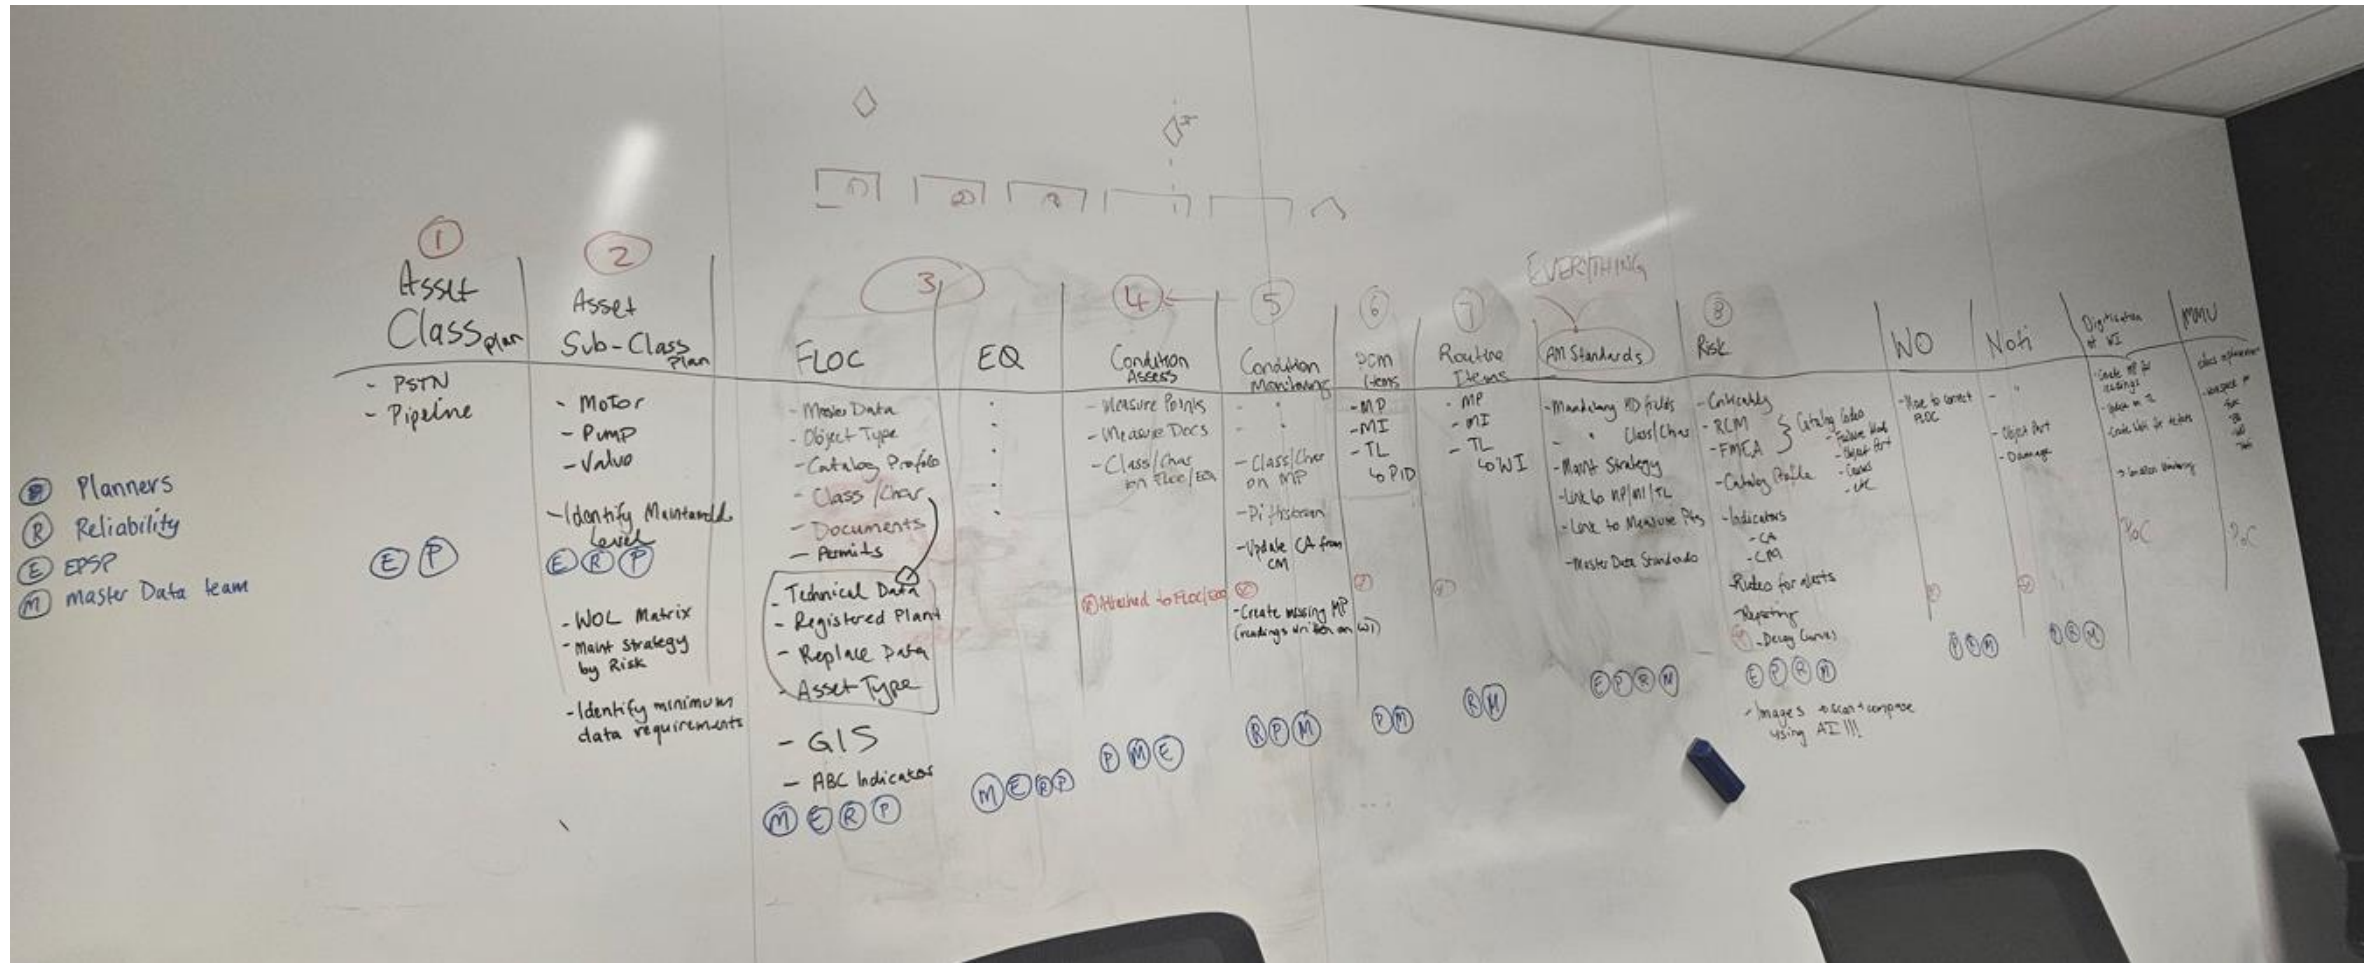 P Planners
R Reliability
E EPSP
M Master Data team
1
Asset
Class plan
- PSTN
- Pipeline
E P
2
Asset
Sub-Class
Plan
- Motor
- Pump
- Valve
- Identify
Level
E R P
- WOL Matrix
- Maint Strategy
by Risk
- Identify minimum
data requirements
3
FLOC
- Master Data
- Object Type
- Catalog Profile
- Class/Char
- Documents
- Permits
- Technical Data
- Registered Plant
- Replace Data
- Asset Type
- GIS
- ABC Indicator
M E R P
EQ
M E R P
4
Condition
Assess
- Measure Points
- Measure Docs
- Class/Char
on Floc/EQ
Attached to FLOC/
P M E
5
Condition
Monitoring
- Class/Char
on MP
- Update CA from
CM
- Create missing MP
(readings written on WI)
R P M
6
Items
- MP
- MI
- TL
↳ PID
P M
7
Routine
Items
- MP
- MI
- TL
↳ WI
R M
EVERYTHING
AM Standards
- Mandatory MD fields
- " Class/Char
- Maint Strategy
- Link to MP/MI/TL
- Link to Measure Pts
- Master Data Standards
E P R M
8
Risk
- Criticality
- RCM
- FMEA
} Catalog Codes
- Object Part
- Causes
- etc
- Catalog Profile
- Indicators
- CA
- Rules for alerts
- Reporting
- Decay Curves
E P R M
- Images → scan + compare
using AI !!!
WO
- Move to correct
FLOC
Noti
- "
- Object Part
- Damage
R M
Digitisation
of WI
- Create MP for
readings
PoC
MMU
PoC